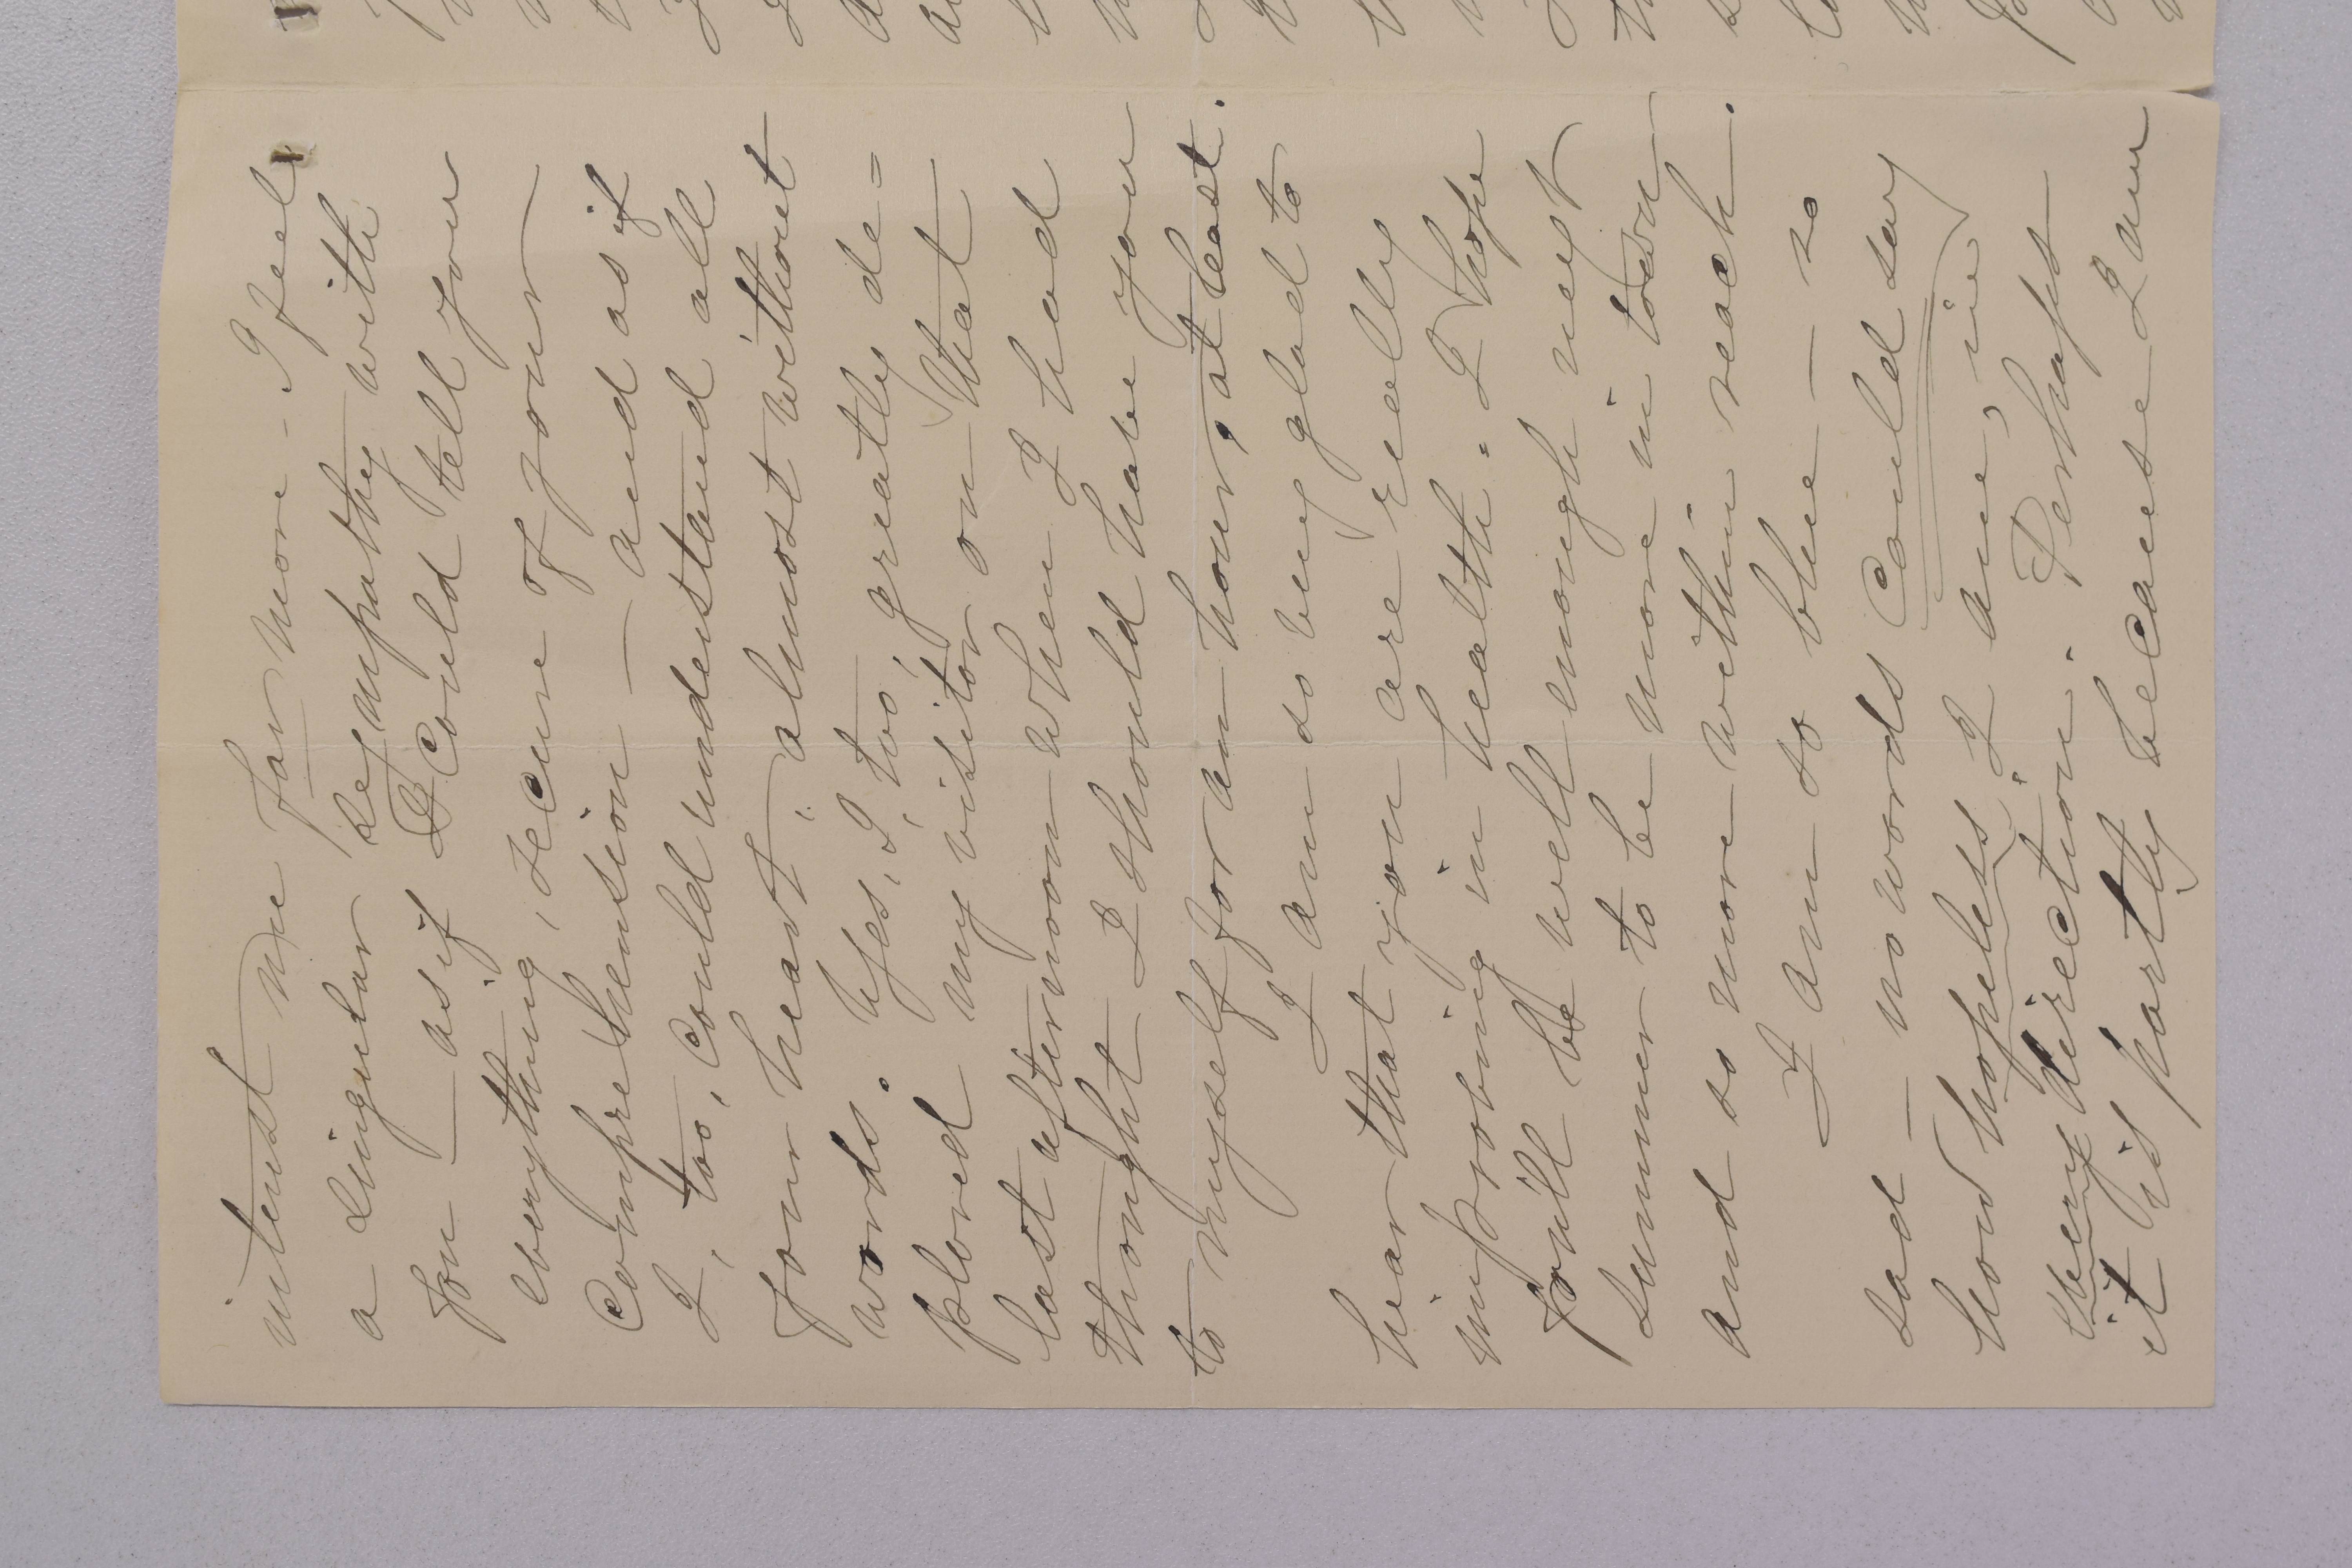 interest me far more - I feel
a singular sympathy with
you — as if I could tell you
everything, secure of your
comprehension — and as if
I, too, could understand all
your heart, almost without
words. Yes, I, too, greatly de=
plored my visitor on that
last afternoon when I had
thought I should have you
to myself for an hour, at least.
I am so very glad to
hear that you are really
improving in health. I hope
you'll be well enough next
summer to be more in town
and so more within reach.
I am so blue — so
sad — no words could say
how hopeless I am, in
every direction. Perhaps
it is partly because I am